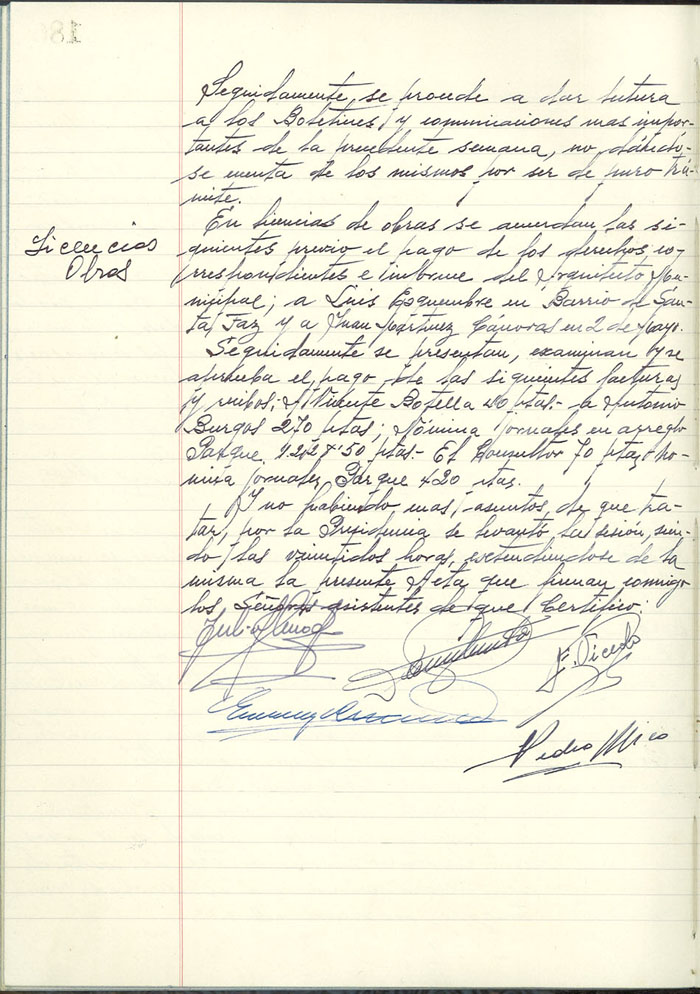 Seguidamente, se procede a dar lectura
a los Boletines y comunicaciones mas impor-
tantes de la precedente semana, no dándo-
se cuenta de los mismos por ser de puro trá-
mite.
Licencias
Obras
En licencias de obras se acuerdan las si-
guientes previo el pago de los derechos co-
rrespondientes e informe del Arquitecto Mu-
nicipal; a Luis Esquembre en Barrio de San-
ta Faz y a Juan Martinez Cánovas en 2 de Mayo.
Seguidamente se presentan, examinan y se
aprueba el pago de las siguientes facturas
y recibos; A Vicente Botella ptas.- a Antonio
Burgos 270 ptas; Nómina jornales en arreglo
Parque ptas.- El Consultor 70 ptas
jornales Parque 420 ptas.
Y no habiendo mas asuntos de que tra-
tar, por la Presidencia se levantó la sesión, sien-
do las veintidos horas, extendiéndose de la
misma la presente Acta que firman conmigo
los Señores asistentes de que Certifico:
Pedro Mico